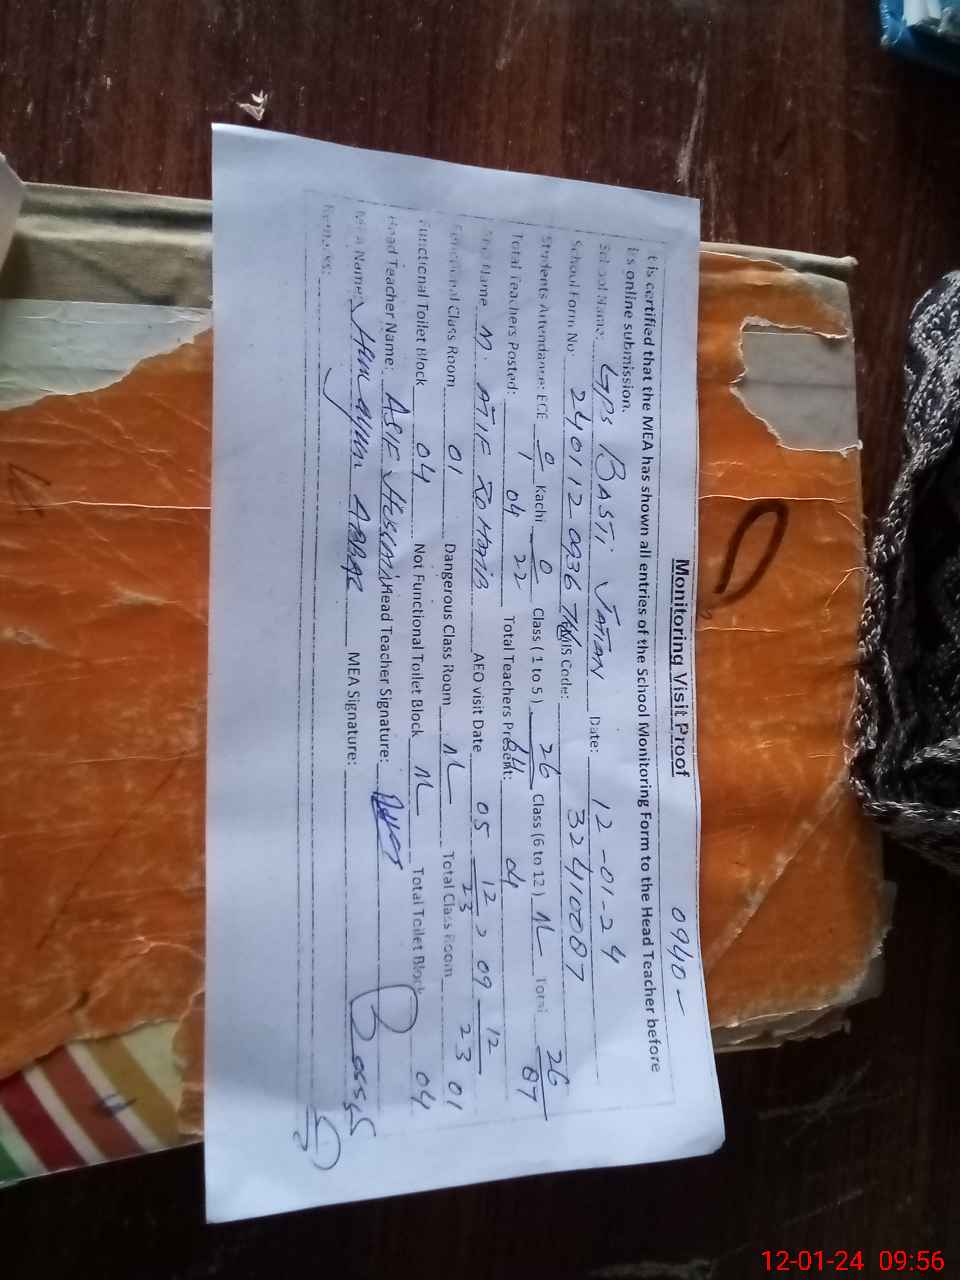 Monitoring Visit Proof 0940-
t is certified that the MEA has shown all entries of the School Monitoring Form to the Head Teacher before
its online submission.
School Name: GPS BASTI Date: 12-01-24
School Form No: 2401120936 Code: 32410087
Students Attendance: ECE 0 Kachi 0 Class ( 1 to 5 ) 26 Class (6 to 12 ) NL Total 26
22 87
Total Teachers Posted: 04 Total Teachers Present: 04
Name M. ATIF AEO visit Date 05 12 23 , 09 12 23
Functional Class Room 01 Dangerous Class Room NL Total Class Room 01
Functional Toilet Block 04 Not Functional Toilet Block NL Total Toilet Block 04
Head Teacher Name: ASIF Hussain Head Teacher Signature:
MEA Name: Humayun ABBAR MEA Signature:
Remarks:
12-01-24 09:56